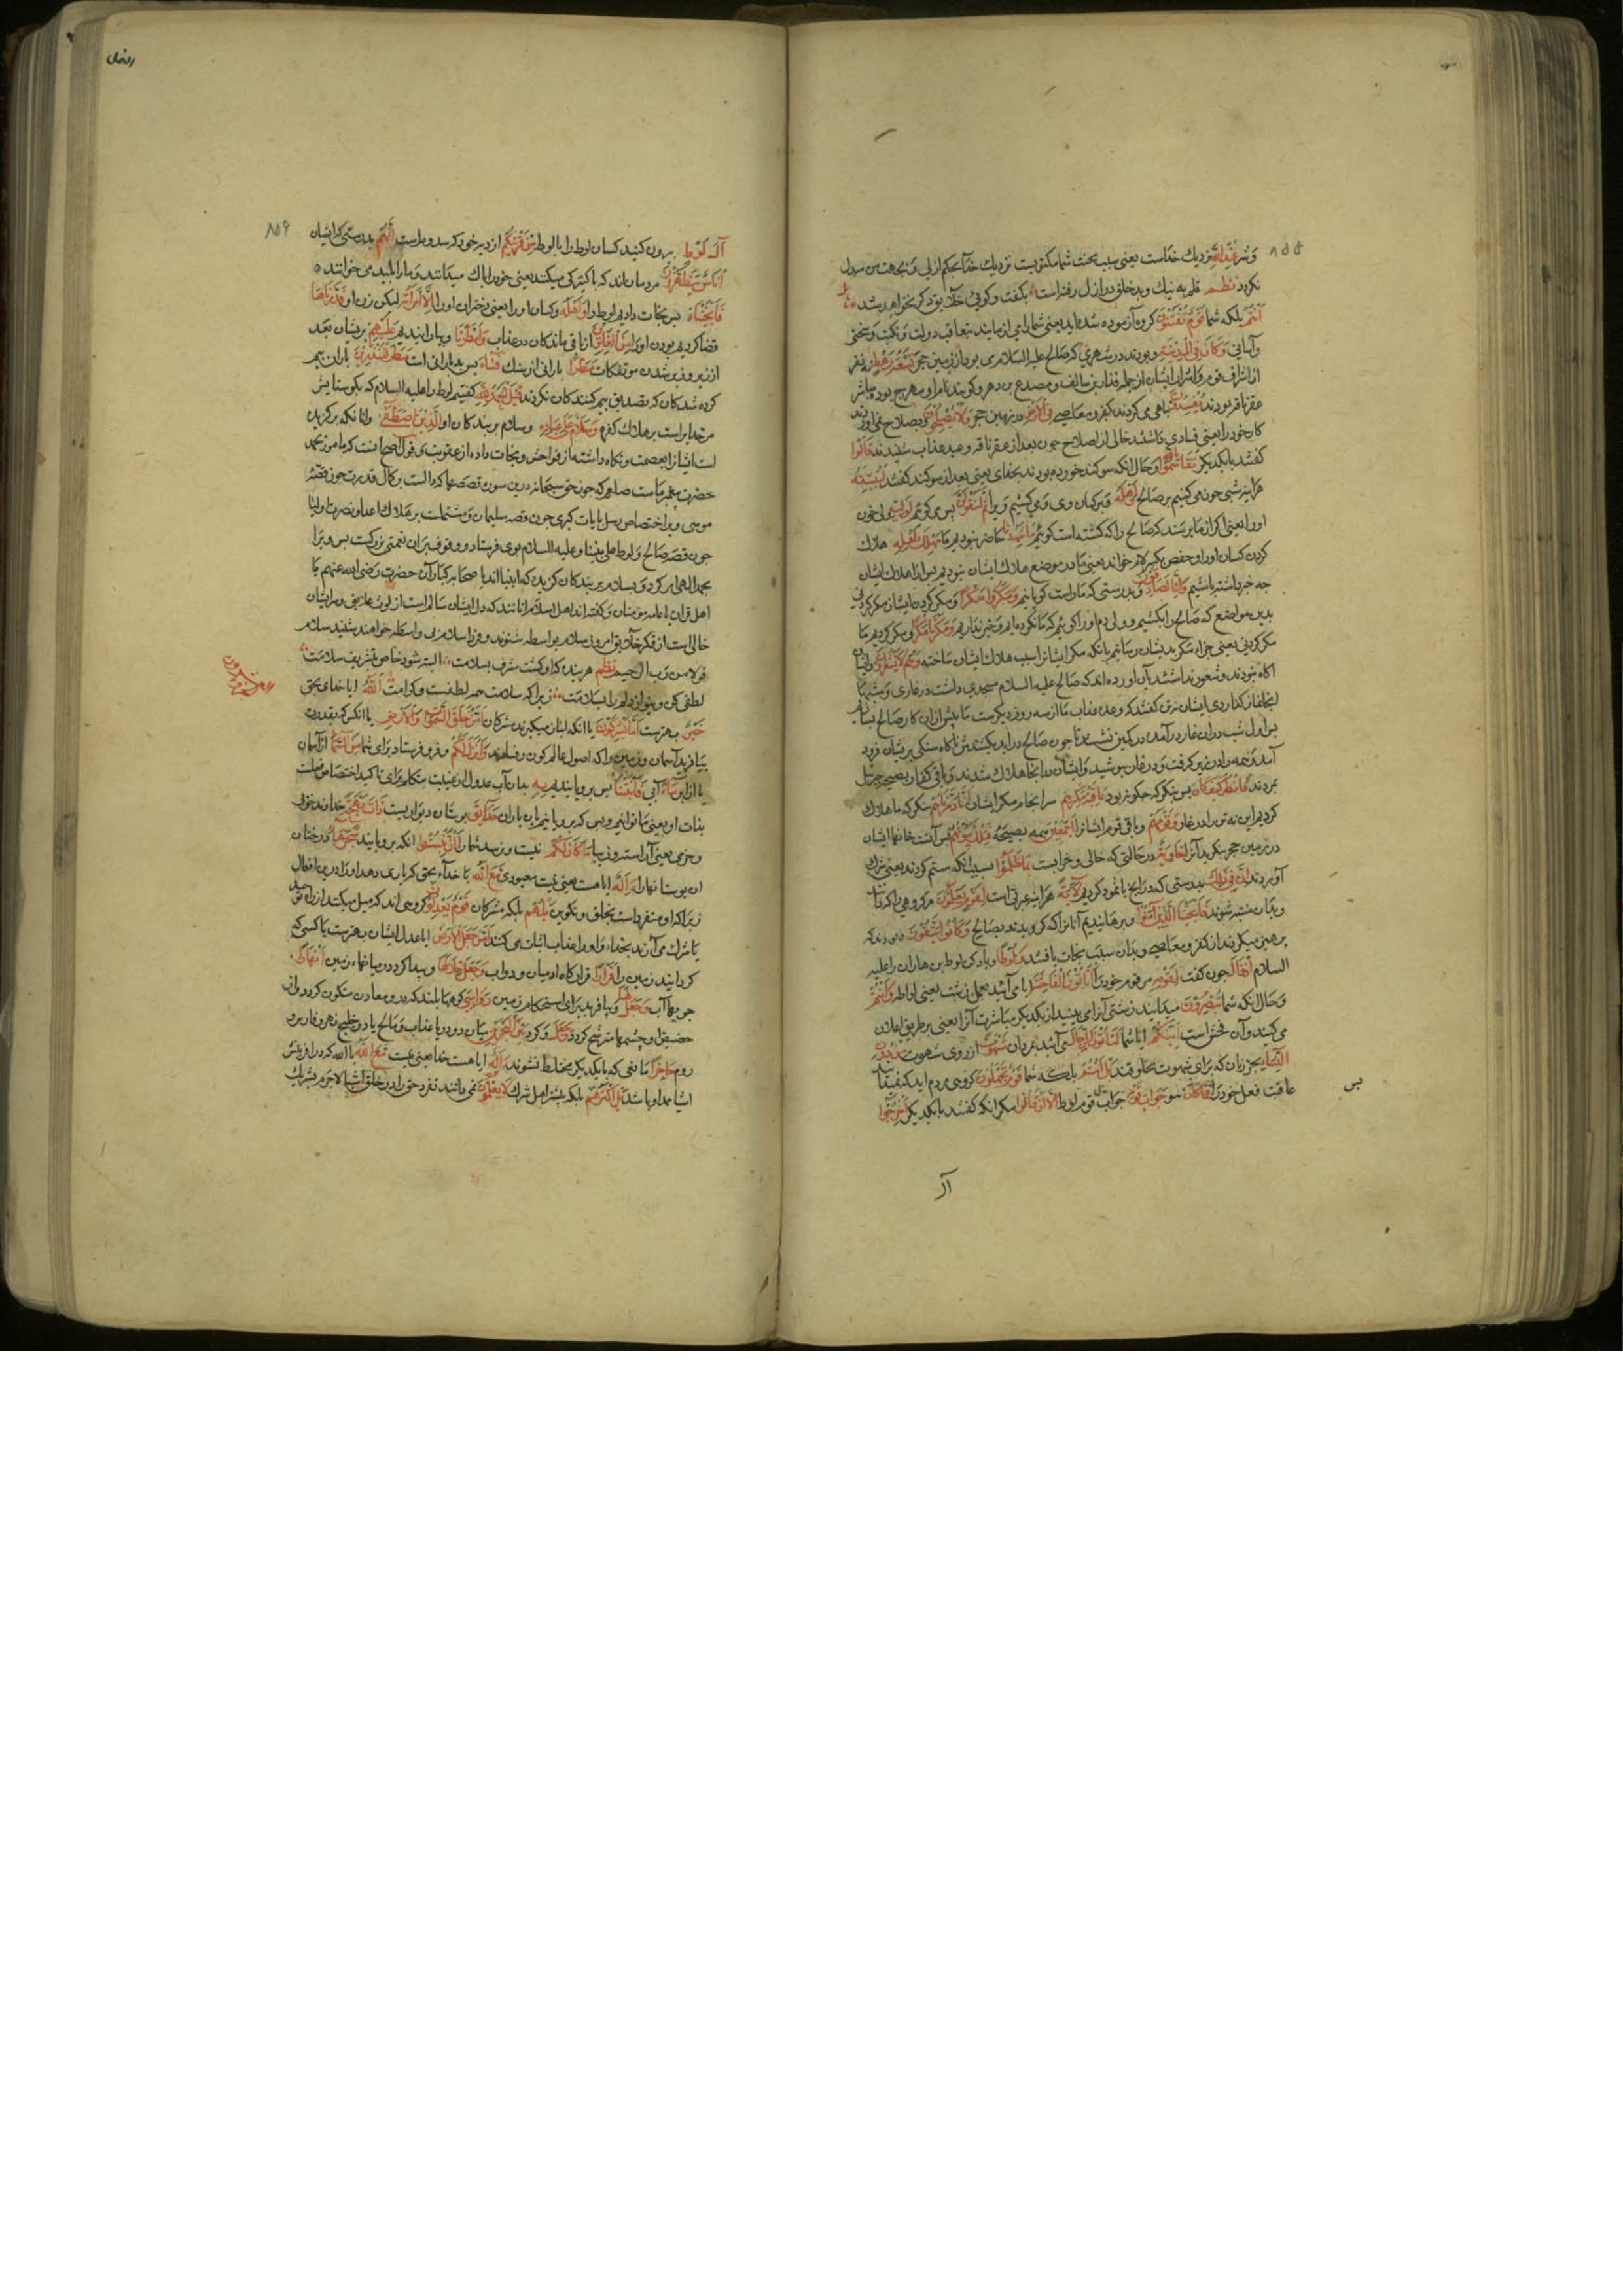 ٨٥٥
وشر عِنْدَ اللَّهِ نزديك خداست يعنى سبب محنت شما مكتوبست نزديك خدا بحكم ازلى و بجهت من مبدل
نكردد نظم قلم به نيك وبد خلق در ازل رفتست بكفت وكوى خلايق دكر نخواهد شد
أَنْتُمْ بلكه شما قَوْمٌ تُفْتَنُونَ كروه آزموده شده ايد يعنى شما را مى ازمايند بتعاقب دولت و نكبت و سختى
وآسانى وَكَانَ فِي الْمَدِينَةِ و بودند در شهرى كه صالح عليه السلام مى بود از زمين حجر تِسْعَةُ رَهْطٍ نه نفر
از اشراف قوم و ايشان از جمله قذار بن سالف و مصدع بن دهر
عقر ناقه بودند يُفْسِدُونَ تباهى مى كردند بكفر و معاصى فِي الْأَرْضِ در زمين حجر وَلَا يُصْلِحُونَ و بصلاح نمى اوردند
كار خود را يعنى فسادى داشتند خالى از اصلاح چون بعد از عقر ناقه وعيد عذاب شنيدند قَالُوا
كفتند با يكديكر تَقَاسَمُوا بِاللَّهِ و حال انكه سوكند خورده بودند بخداى يعنى بعد از سوكند كفتند لَنُبَيِّتَنَّهُ
هراينه شبى خون مى كنيم بر صالح وَأَهْلَهُ و بر كسان وى و مى كشيم ويرا ثُمَّ لَنَقُولَنَّ پس مى كوئيم لِوَلِيِّهِ ولى خون
اورا يعنى اكر از ما پرسند كه صالح را كه كشته است كوئيم مَا شَهِدْنَا حاضر نبوديم ما مَهْلِكَ أَهْلِهِ هلاك
كردن كسان اورا و حفص بكسر لام خواند يعنى ما در موضع هلاك ايشان نبوديم پس از هلاك ايشان
چه خبر داشته باشيم وَإِنَّا لَصَادِقُونَ و بدرستى كه ما راست كويانيم وَمَكَرُوا مَكْرًا و مكر كردند ايشان مكر كردنى
بدين مواضع كه صالح را بكشيم و ولى دم اورا كوئيم كه ما نكرده ايم و خبر نداريم وَمَكَرْنَا مَكْرًا و مكر كرديم ما
مكر كردنى يعنى جزاء مكر بديشان رسانيم بانكه مكر ايشانرا سبب هلاك ايشان ساخته وَهُمْ لَا يَشْعُرُونَ و ايشان
اكاه نبودند و شعور نداشتند بآن اورده اند كه صالح عليه السلام مسجدى داشت در غارى و شبها
انجا نماز كذاردى ايشان كفتند كه وعده عذاب ما از سه روز ديكرست ما پيش ازان كار صالح بسازيم
پس اول شب دران غار درآمده در كمين نشستند تا چون صالح درايد بكشندش ناكاه سنكى بر ايشان فرود
آمد و همه را در زير كرفت و در غار پوشيد و ايشان در انجا هلاك شدند و باقى كفار بصيحه جبرئيل
بمردند فَانْظُرْ كَيْفَ كَانَ پس بنكر كه چكونه بود عَاقِبَةُ مَكْرِهِمْ سرانجام مكر ايشان أَنَّا دَمَّرْنَاهُمْ بنكر كه ما هلاك
كرديم اين نه تن را در غار وَقَوْمَهُمْ و باقى قوم ايشانرا أَجْمَعِينَ همه بصيحه فَتِلْكَ بُيُوتُهُمْ پس آنست خانهاء ايشان
در زمين حجر بنكريد آنرا خَاوِيَةً در حالتى كه خالى و خرابست بِمَا ظَلَمُوا بسبب انكه ستم كردند يعنى شرك
آوردند إِنَّ فِي ذَلِكَ بدرستى كه در انچ با ثمود كرديم لَآيَةً هراينه عبرتى است لِقَوْمٍ يَعْلَمُونَ مر كروهى را كه دانند
وبدان متنبه شوند وَأَنْجَيْنَا الَّذِينَ آمَنُوا و برهانيديم آنانرا كه كرويدند بصالح وَكَانُوا يَتَّقُونَ و بودند كه
پرهيز ميكردند از كفر و معاصى و بدان سبب نجات يافتند وَلُوطًا و ياد كن لوط بن هاران را عليه
السلام إِذْ قَالَ چون كفت لِقَوْمِهِ مر قوم خودرا أَتَأْتُونَ الْفَاحِشَةَ ايا مى آئيد بعمل زشت يعنى لواطه وَأَنْتُمْ
و حال انكه شما تُبْصِرُونَ ميدانيد زشتى آنرا يا مى بينيد از يكديكر مباشرت آنرا يعنى بر طريق اعلان
مى كنيد و آن فحش است أَئِنَّكُمْ ايا شما لَتَأْتُونَ الرِّجَالَ مى آئيد بمردان شَهْوَةً از روى شهوت مِنْ دُونِ
النِّسَاءِ بجز زنان كه براى شهوت مخلوقند بَلْ أَنْتُمْ بلكه شما قَوْمٌ تَجْهَلُونَ كروهى مردم ايد كه نميدانيد
عاقبت فعل خودرا فَمَا كَانَ پس نبود جَوَابَ قَوْمِهِ جواب قوم لوط إِلَّا أَنْ قَالُوا مكر انكه كفتند با يكديكر أَخْرِجُوا
آل
٨٥٦
آلَ لُوطٍ بيرون كنيد كسان لوط را با لوط مِنْ قَرْيَتِكُمْ از ديه خود كه سدومست إِنَّهُمْ بدرستى كه ايشان
أُنَاسٌ يَتَطَهَّرُونَ مردمان اند كه پاكيزكى ميكنند يعنى خودرا پاك ميدانند و مارا پليد مى خوانند
فَأَنْجَيْنَاهُ پس نجات داديم لوط را وَأَهْلَهُ و كسان اورا يعنى دختران اورا إِلَّا امْرَأَتَهُ ليكن زن او قَدَّرْنَاهَا
قضا كرديم بودن اورا مِنَ الْغَابِرِينَ از باقى ماندكان در عذاب وَأَمْطَرْنَا و بارانيديم عَلَيْهِمْ بر ايشان بعد
از زير و زبر شدن موتفكات مَطَرًا بارانى از سنك فَسَاءَ پس بد بارانى است مَطَرُ الْمُنْذَرِينَ باران بيم
كرده شدكان كه تصديق بيم كنندكان نكردند قُلِ الْحَمْدُ لِلَّهِ كفتيم لوط را عليه السلام كه بكو ستايش
مر خدايراست بر هلاك كفره وَسَلَامٌ عَلَى عِبَادِهِ و سلام بر بندكان او الَّذِينَ اصْطَفَى وانانكه بركزيده
است ايشانرا بعصمت و نكاه داشته از فواحش و نجات داده از عقوبت و قول اصح آنست كه مامور بحمد
حضرت پيغمبر ماست صلعم كه چون حق سبحانه درين سوره قصصها كه دالست بر كمال قدرت چون قصه
موسى و بر اختصاص رسل بايات كبرى چون قصه سليمان و مشتملست بر هلاك اعدا و نصرت اوليا
چون قصه صالح و لوط على نبينا و عليه السلام بوى فرستاد و وقوف بران نعمتى بزركست پس ويرا
بحمد الهى امر كرد و بسلام بر بندكان كزيده كه انبيااند يا صحابه كبار آن حضرت رضى الله عنهم يا
اهل قران يا عامه مومنان و كفته اند اهل اسلام انانند كه دل ايشان سالم است از لوث علايق و سر ايشان
خالى است از فكر خلايق امروز سلام بواسطه شنوند و فردا سلام بى واسطه خواهند شنيد سلام
قولا من رب الرحيم نظم هر بنده كه او كشت مشرف بسلامت البته شود خاص بتشريف سلامت
لطفى كن و بنواز دلمرا بسلامت زيرا كه سلامت همه لطفست و كرامت آللَّهُ ايا خداى بحق
خَيْرٌ بهترست أَمَّا يُشْرِكُونَ يا انكه انباز ميكيرند مشركان أَمَّنْ خَلَقَ السَّمَوَاتِ وَالْأَرْضَ يا انكس كه بقدرت
بيافريد آسمان و زمين را كه اصول عالم كون و فسادند وَأَنْزَلَ لَكُمْ و فرو فرستاد براى شما مِنَ السَّمَاءِ از آسمان
يا از ابر مَاءً آبى فَأَنْبَتْنَا پس برويانيديم بِهِ بدان آب عدول از غيبت بتكلم براى تاكيد اختصاص فعلست
بذات او يعنى ما توانيم و بس كه برويانيم باين باران حَدَائِقَ بوستان ذَاتَ بَهْجَةٍ خداوند خوبى
و خرمى يعنى آراسته و زيبا مَا كَانَ لَكُمْ نيست و نرسد شمارا أَنْ تُنْبِتُوا انكه برويانيد شَجَرَهَا درختان
ان بوستانها را أَإِلَهٌ ايا هست يعنى نيست معبودى مَعَ اللَّهِ با خداء بحق كه يارى دهد اورا درين افعال
زيرا كه او متفرد است بخلق و تكوين بَلْ هُمْ بلكه مشركان قَوْمٌ يَعْدِلُونَ كروهى اند كه ميل ميكنند از راه توحيد
يا شرك مى آرند بخداء و اورا همتا اثبات مى كنند أَمَّنْ جَعَلَ الْأَرْضَ ايا عدل ايشان بهترست يا كسى كه
كردانيد زمين را قَرَارًا قراركاه ادميان و دواب وَجَعَلَ خِلَالَهَا و پيدا كرد در ميانهاء زمين أَنْهَارًا
جويهاء آب وَجَعَلَ لَهَا و بيافريد براى استحكام زمين رَوَاسِيَ كوهها بلند كه درو معادن متكون كردد و از
حضيض او چشمها مترشح كردد وَجَعَلَ و كرد بَيْنَ الْبَحْرَيْنِ ميان دو دريا عذب و مالح يا دو خليج فارس و
روم حَاجِزًا مانعى كه بايكديكر مختلط نشوند أَإِلَهٌ ايا هست خدا يعنى نيست مَعَ اللَّهِ با الله كه در افرينش
اشيا مدد او باشد بَلْ أَكْثَرُهُمْ بلكه بيشتر اهل شرك لَا يَعْلَمُونَ نمى دانند تفرد حق را در خلق اشيا لاجرم بشريك